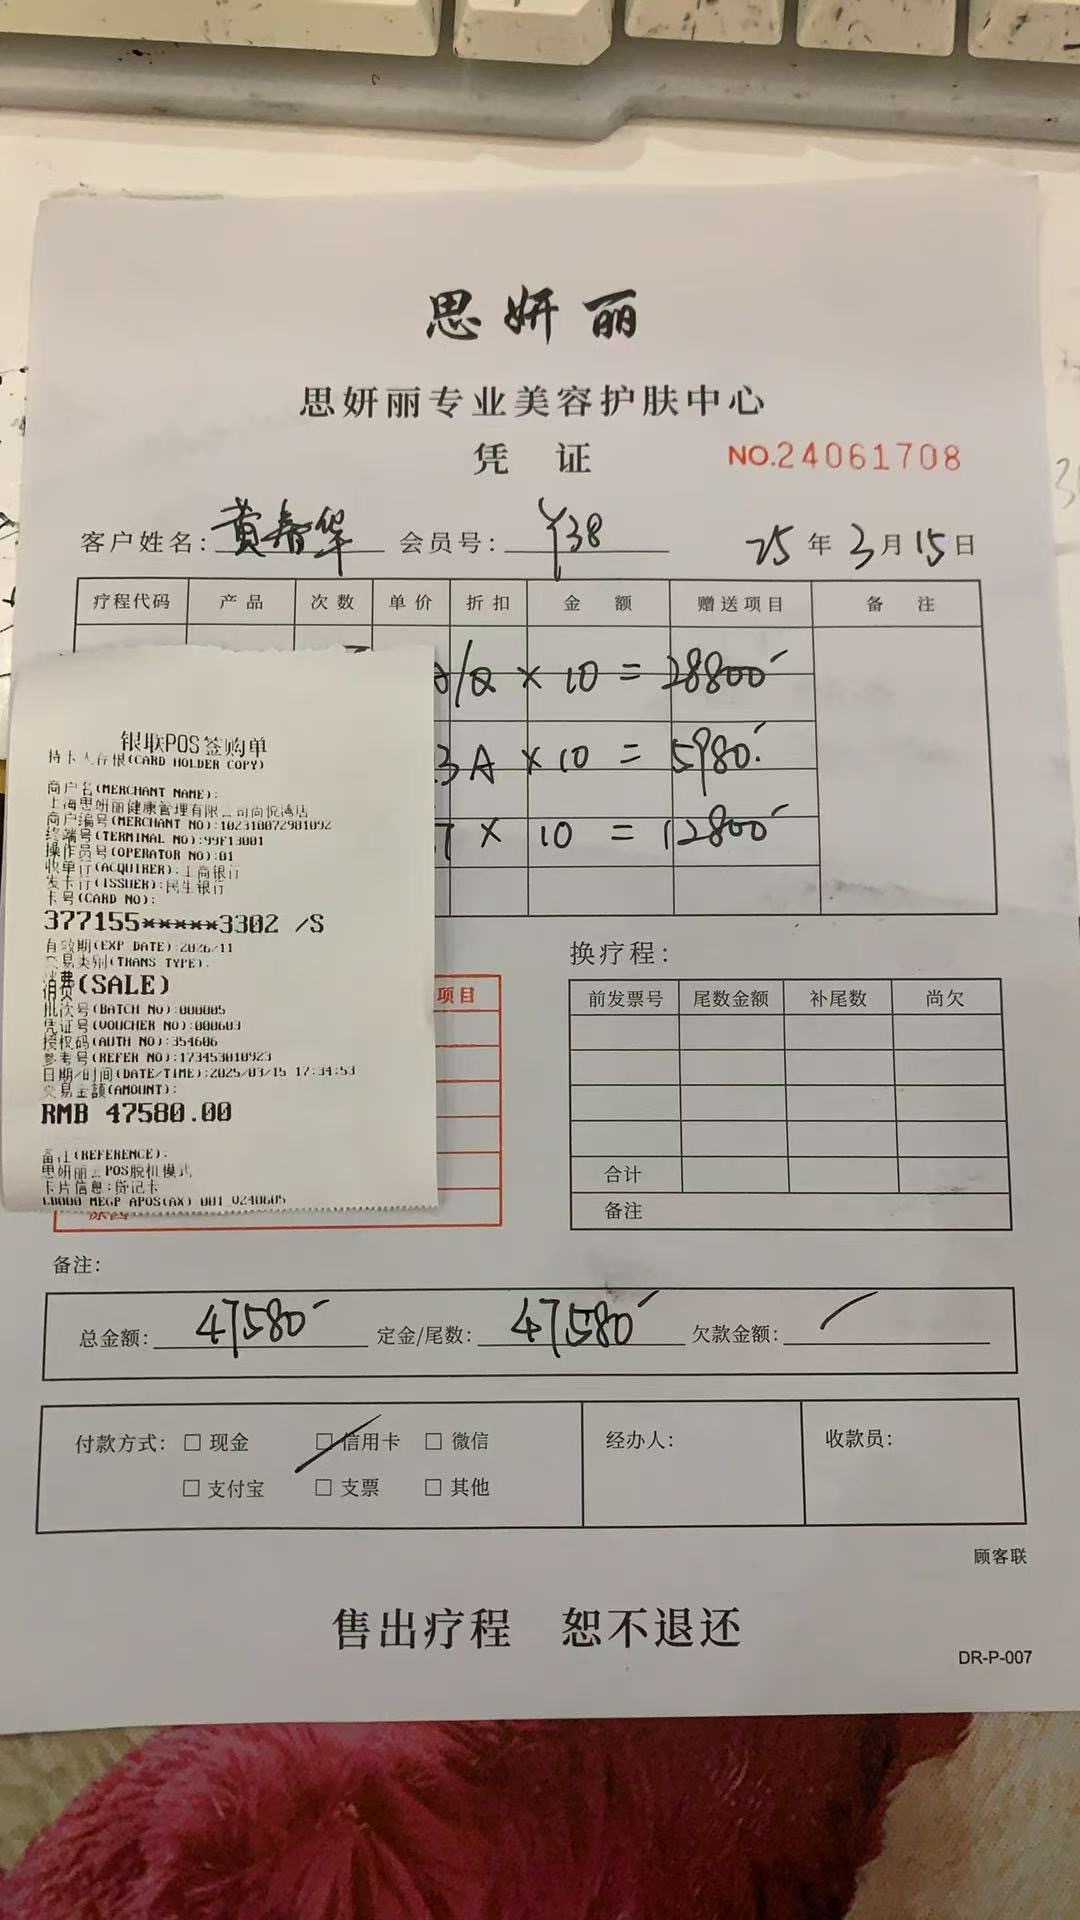 思妍丽
思妍丽专业美容护肤中心
凭 证
NO.24061708
客户姓名: 黄春华 会员号: Y38 25年3月15日
疗程代码 产品 次数 单价 折扣 金额 赠送项目 备注
× 10 = 28800
3A × 10 = 5980
7 × 10 = 12800
银联POS签购单
持卡人存根(CARD HOLDER COPY)
商户名(MERCHANT NAME):
上海思妍丽健康管理有限公司尚悦湾店
商户编号(MERCHANT NO):102310072981092
终端号(TERMINAL NO):99F13001
操作员号(OPERATOR NO):01
收单行(ACQUIRER):工商银行
发卡行(ISSUER):民生银行
卡号(CARD NO):
377155*****3302 /S
有效期(EXP DATE):2026/11
交易类别(TRANS TYPE):
消费(SALE)
批次号(BATCH NO):000005
凭证号(VOUCHER NO):000603
授权码(AUTH NO):354606
参考号(REFER NO):173453010923
日期/时间(DATE/TIME):2025/03/15 17:34:53
交易金额(AMOUNT):
RMB 47580.00
备注(REFERENCE):
思妍丽云POS脱机模式
卡片信息:贷记卡
项目
换疗程:
前发票号 尾数金额 补尾数 尚欠
合计
备注
备注:
总金额: 47580 定金/尾数: 47580 欠款金额:
付款方式: □ 现金 □ 信用卡 □ 微信
□ 支付宝 □ 支票 □ 其他
经办人: 收款员:
顾客联
售出疗程 恕不退还
DR-P-007